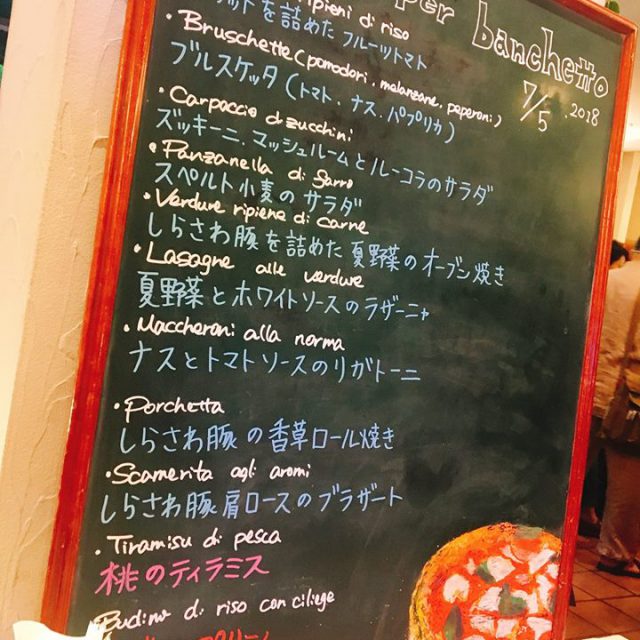 per banchetto
7/5 .2018
ripieni di riso
を詰めた フルーツトマト
・Bruschette (pomodori, melanzane, peperoni)
ブルスケッタ (トマト、ナス、パプリカ)
・Carpaccio di zucchini
ズッキーニ、マッシュルームとルーコラのサラダ
・Panzanella di Farro
スペルト小麦のサラダ
・Verdure ripiene di carne
しらさわ豚を詰めた夏野菜のオーブン焼き
・Lasagne alle verdure
夏野菜とホワイトソースのラザーニャ
・Maccheroni alla norma
ナスとトマトソースのリガトーニ
・Porchetta
しらさわ豚の香草ロール焼き
・Scamerita agli aromi
しらさわ豚肩ロースのブラザート
・Tiramisu di pesca
桃のティラミス
Budino di riso con ciliege